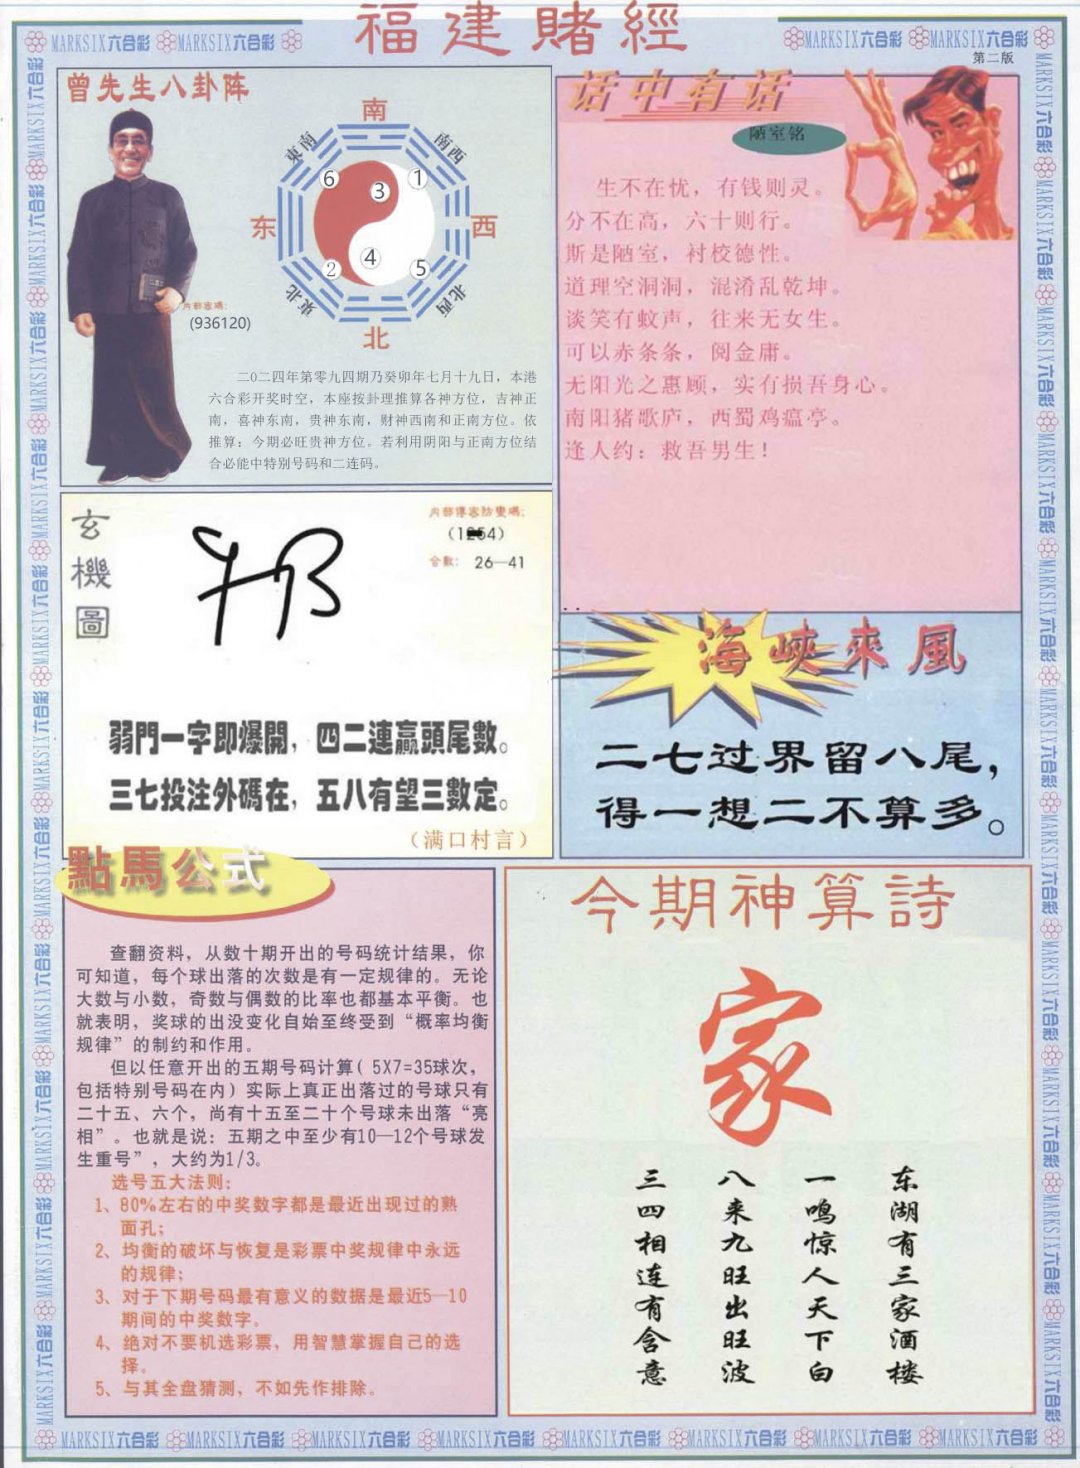 福建賭經
MARKSIX六合彩 MARKSIX六合彩
MARKSIX六合彩 MARKSIX六合彩
第二版
曾先生八卦阵
南
東南
南西
6
3
1
东
西
2
4
5
東北
北西
北
内部密碼:
(936120)
二0二四年第零九四期乃癸卯年七月十九日，本港
六合彩开奖时空，本座按卦理推算各神方位，吉神正
南，喜神东南，贵神东南，财神西南和正南方位。依
推算：今期必旺贵神方位。若利用阴阳与正南方位结
合必能中特别号码和二连码。
话中有话
陋室铭
生不在忧，有钱则灵。
分不在高，六十则行。
斯是陋室，衬校德性。
道理空洞洞，混淆乱乾坤。
谈笑有蚊声，往来无女生。
可以赤条条，阅金庸。
无阳光之惠顾，实有损吾身心。
南阳猪歌庐，西蜀鸡瘟亭。
逢人约：救吾男生！
玄機圖
内部傳密防變碼:
合數: 26—41
弱門一字即爆開，四二連贏頭尾數。
三七投注外碼在，五八有望三數定。
（满口村言）
海峽來風
二七过界留八尾，
得一想二不算多。
點馬公式
查翻资料，从数十期开出的号码统计结果，你
可知道，每个球出落的次数是有一定规律的。无论
大数与小数，奇数与偶数的比率也都基本平衡。也
就表明，奖球的出没变化自始至终受到“概率均衡
规律”的制约和作用。
但以任意开出的五期号码计算( 5X7=35球次，
包括特别号码在内) 实际上真正出落过的号球只有
二十五、六个，尚有十五至二十个号球未出落“亮
相”。也就是说：五期之中至少有10—12个号球发
生重号”，大约为1/3。
选号五大法则:
1、80%左右的中奖数字都是最近出现过的熟
面孔；
2、均衡的破坏与恢复是彩票中奖规律中永远
的规律；
3、对于下期号码最有意义的数据是最近5—10
期间的中奖数字。
4、绝对不要机选彩票，用智慧掌握自己的选
择。
5、与其全盘猜测，不如先作排除。
今期神算詩
家
东湖有三家酒楼
一鸣惊人天下白
八来九旺出旺波
三四相连有含意
MARKSIX六合彩 MARKSIX六合彩 MARKSIX六合彩 MARKSIX六合彩 MARKSIX六合彩 MARKSIX六合彩 MARKSIX六合彩 MARKSIX六合彩